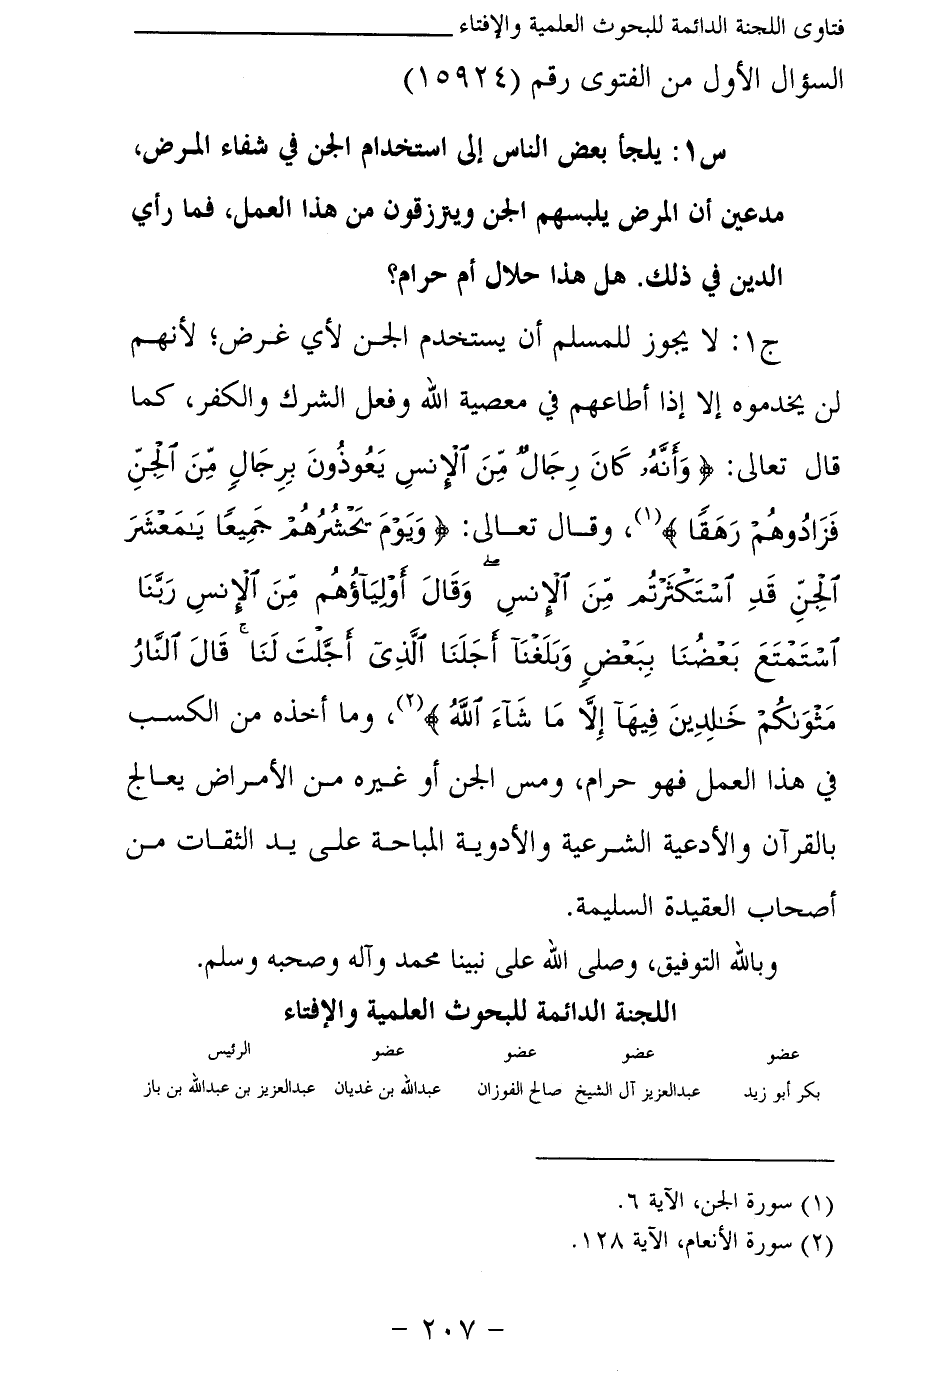 فتاوى اللجنة الدائمة للبحوث العلمية والإفتاء
السؤال الأول من الفتوى رقم (١٥٩٢٤)
س١: يلجأ بعض الناس إلى استخدام الجن في شفاء المرض،
مدعين أن المرض يلبسهم الجن ويترزقون من هذا العمل، فما رأي
الدين في ذلك. هل هذا حلال أم حرام؟
ج١: لا يجوز للمسلم أن يستخدم الجن لأي غرض؛ لأنهم
لن يخدموه إلا إذا أطاعهم في معصية الله وفعل الشرك والكفر، كما
قال تعالى: ﴿ وَأَنَّهُۥ كَانَ رِجَالٌ مِّنَ ٱلْإِنسِ يَعُوذُونَ بِرِجَالٍ مِّنَ ٱلْجِنِّ
فَزَادُوهُمْ رَهَقًا ﴾(١)، وقال تعالى: ﴿ وَيَوْمَ يَحْشُرُهُمْ جَمِيعًا يَٰمَعْشَرَ
ٱلْجِنِّ قَدِ ٱسْتَكْثَرْتُم مِّنَ ٱلْإِنسِ ۖ وَقَالَ أَوْلِيَآؤُهُم مِّنَ ٱلْإِنسِ رَبَّنَا
ٱسْتَمْتَعَ بَعْضُنَا بِبَعْضٍ وَبَلَغْنَآ أَجَلَنَا ٱلَّذِىٓ أَجَّلْتَ لَنَا ۚ قَالَ ٱلنَّارُ
مَثْوَىٰكُمْ خَٰلِدِينَ فِيهَآ إِلَّا مَا شَآءَ ٱللَّهُ ﴾(٢)، وما أخذه من الكسب
في هذا العمل فهو حرام، ومس الجن أو غيره من الأمراض يعالج
بالقرآن والأدعية الشرعية والأدوية المباحة على يد الثقات من
أصحاب العقيدة السليمة.
وبالله التوفيق، وصلى الله على نبينا محمد وآله وصحبه وسلم.
اللجنة الدائمة للبحوث العلمية والإفتاء
عضو عضو عضو عضو الرئيس
بكر أبو زيد عبدالعزيز آل الشيخ صالح الفوزان عبدالله بن غديان عبدالعزيز بن عبدالله بن باز
(١) سورة الجن، الآية ٦.
(٢) سورة الأنعام، الآية ١٢٨.
– ٢٠٧ –